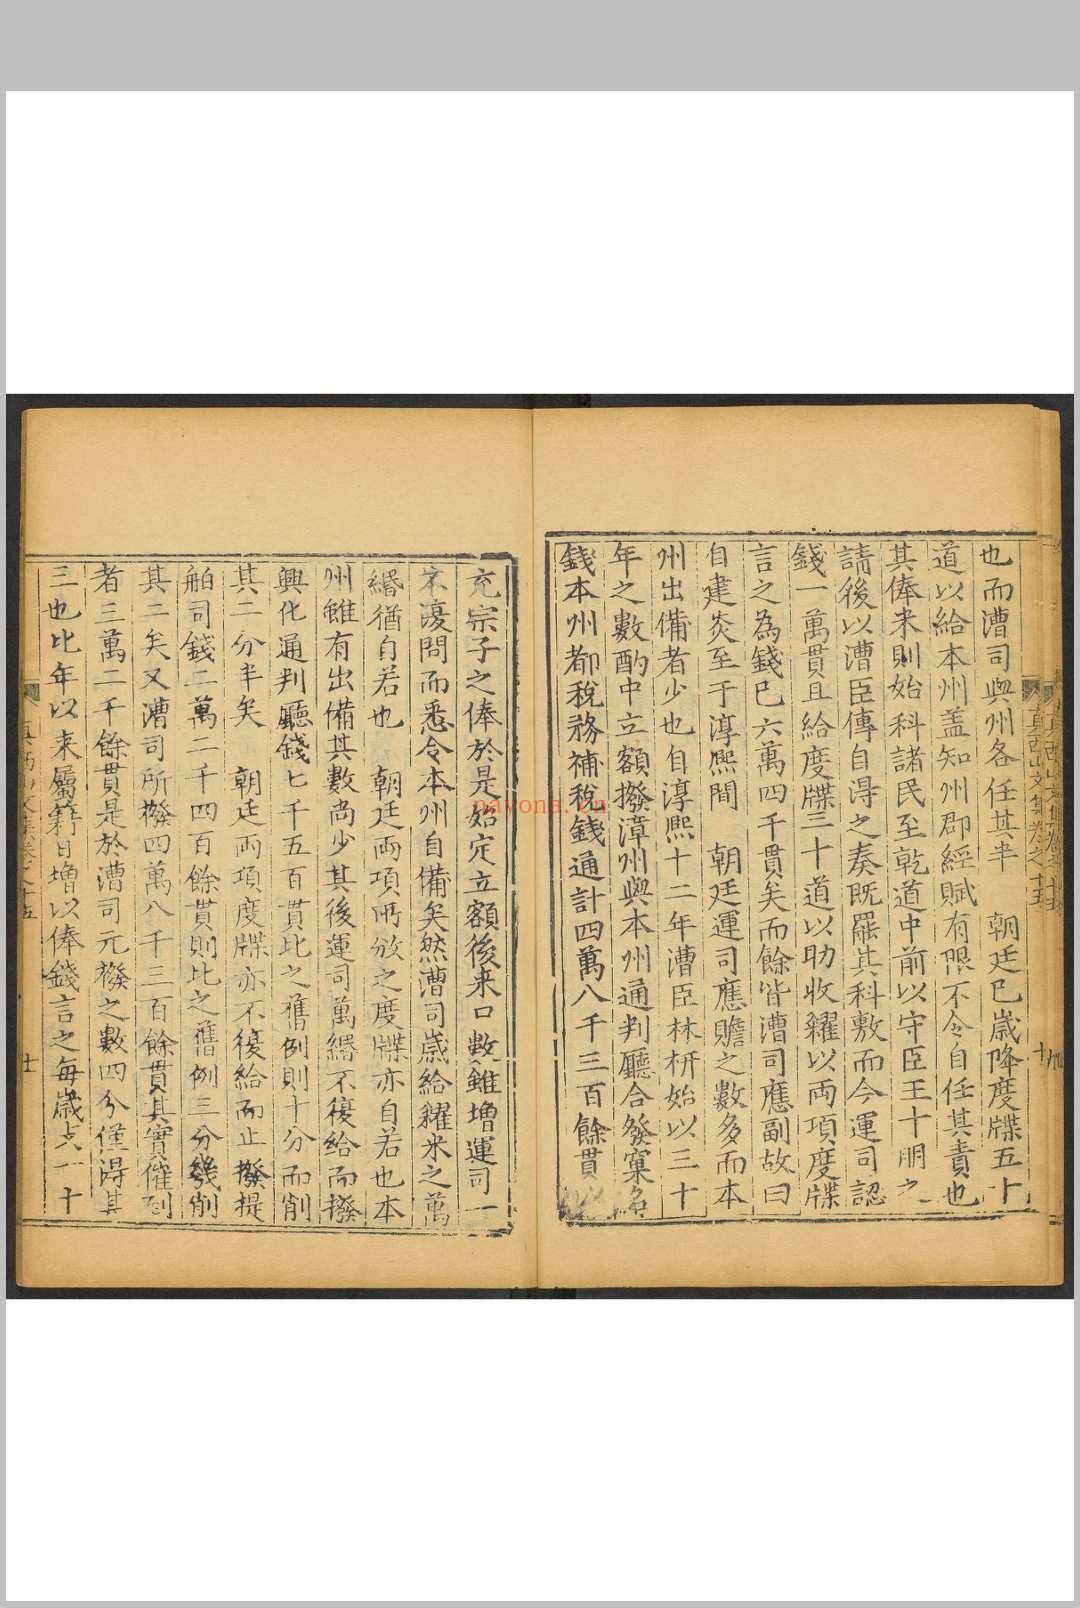 也而漕司與州各任其半　朝廷巳歲降度牒五十
道以給本州盖知州郡經賦有限不令自任其責也
其俸米則始科諸民至乾道中前以守臣王十朋之
請後以漕臣傳自得之奏既罷其科敷而今運司認
錢一萬貫且給度牒三十道以助收糴以両項度牒
言之為錢巳六萬四千貫矣而餘皆漕司應副故曰
自建炎至于淳熙間　朝廷運司應贍之數多而本
州出備者少也自淳熙十二年漕臣林枅始以三十
年之數酌中立額撥漳州與本州通判廳合發窠名
錢本州都稅務補稅錢通計四萬八千三百餘貫
真西山文集卷之十五
充宗子之俸於是始定立額後来口數雖增運司一
不濅問而悉令本州自備矣然漕司歲給糴米之萬
緡猶自若也　朝廷両項所放之度牒亦自若也本
州雖有出備其數尚少其後運司萬緡不復給而撥
興化通判廳錢七千五百貫比之舊例則十分而削
其二分半矣　朝廷両項度牒亦不復給而止撥提
舶司錢二萬二千四百餘貫則比之舊例三分幾削
其二矣又漕司所撥四萬八千三百餘貫其實催到
者三萬二千餘貫是於漕司元撥之數四分僅得其
三也比年以来屬籍日增以俸錢言之每歲占一十
nayona.cn